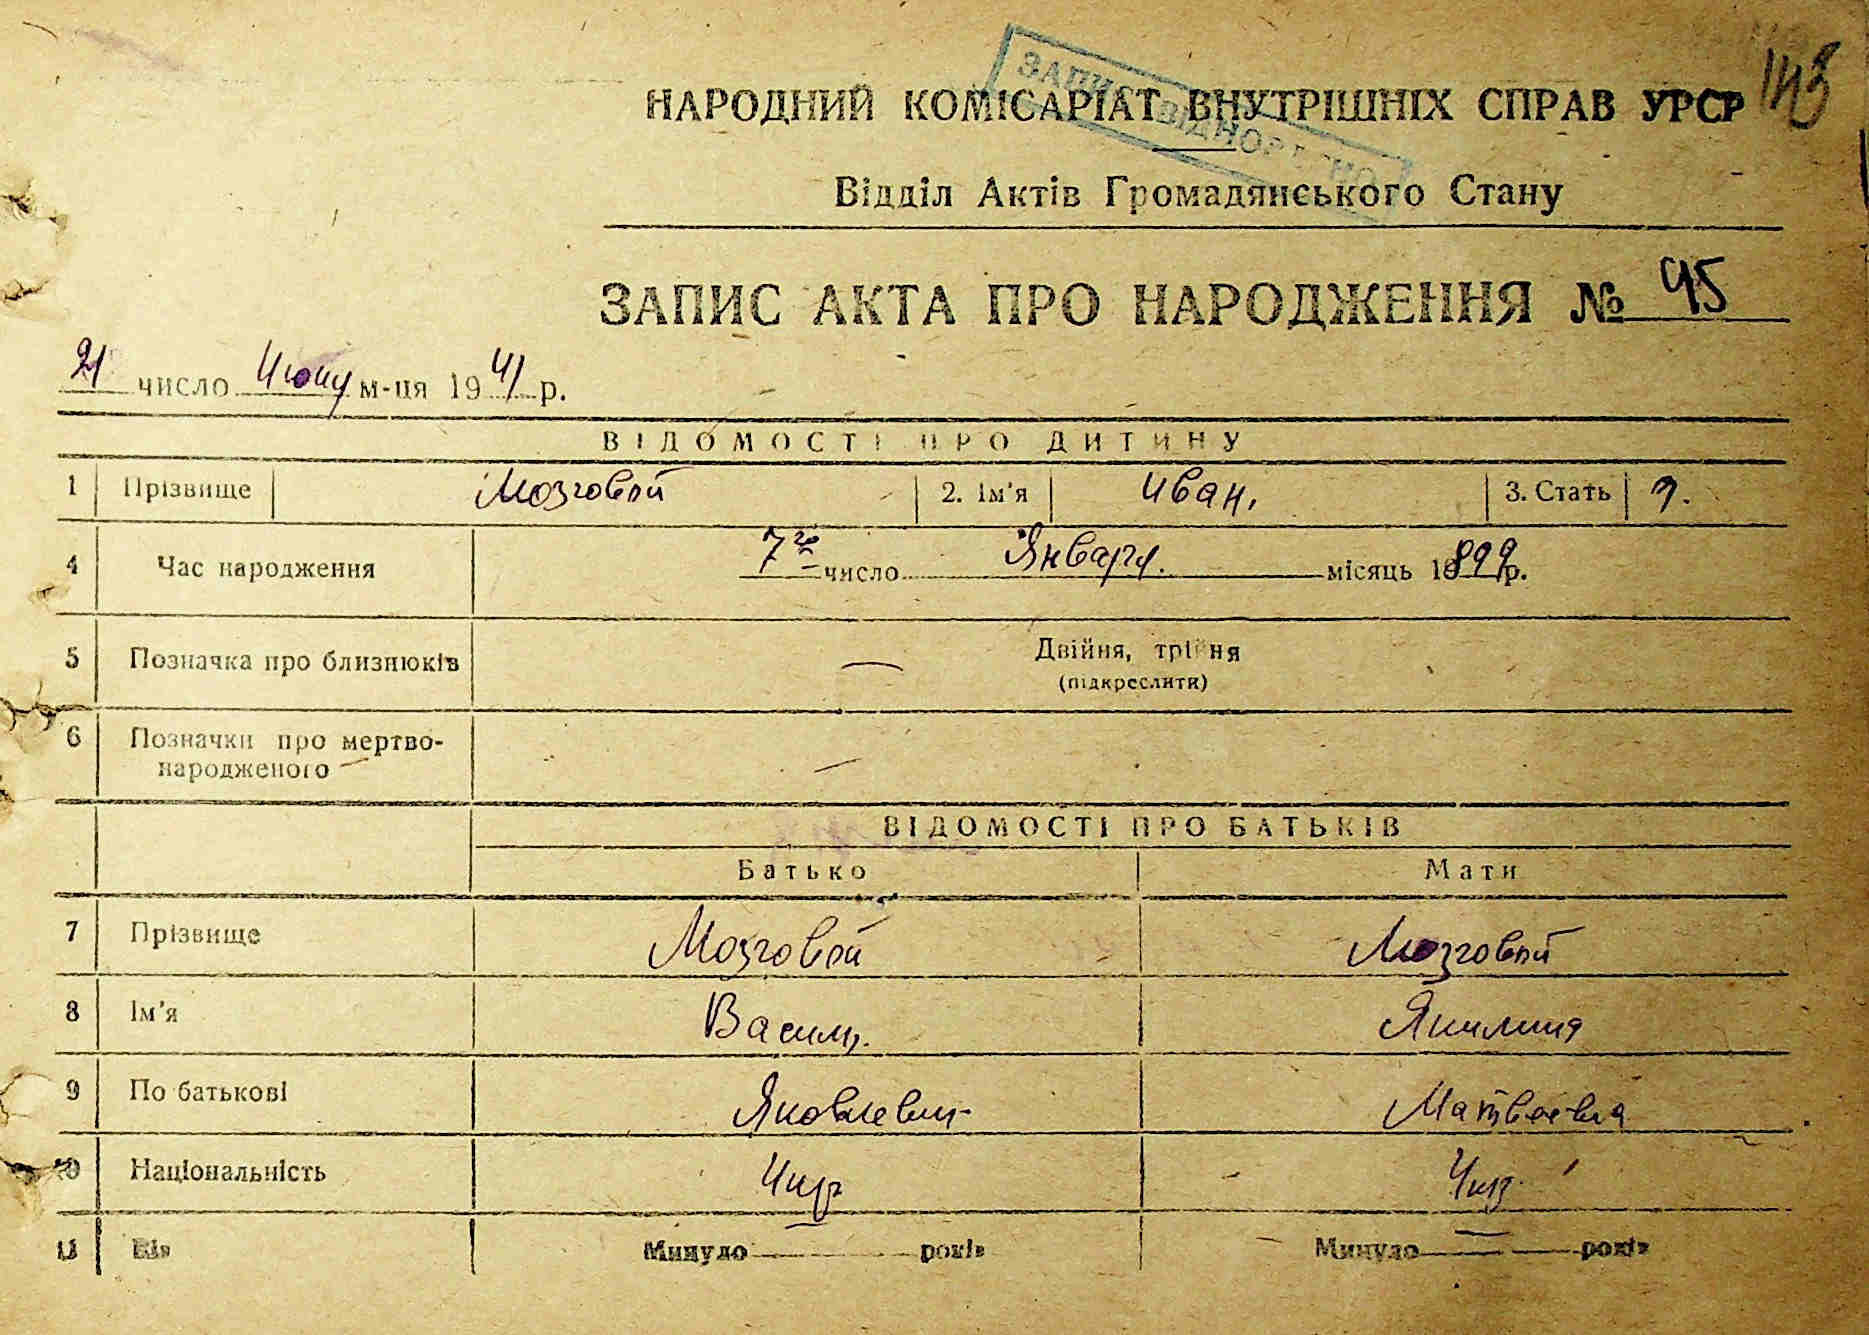 143
ЗАПИС ВІДНОВЛЕНО
НАРОДНИЙ КОМІСАРІАТ ВНУТРІШНІХ СПРАВ УРСР
Відділ Актів Громадянського Стану
ЗАПИС АКТА ПРО НАРОДЖЕННЯ № 45
21 число м-ця 1941 р.
ВІДОМОСТІ ПРО ДИТИНУ
1 Прізвище Мозговой 2. Ім'я Иван. 3. Стать
4 Час народження 7го число Января. місяць 1899 р.
5 Позначка про близнюків — Двійня, трійня
(підкреслити)
6 Позначки про мертво-
народженого —
ВІДОМОСТІ ПРО БАТЬКІВ
Батько Мати
7 Прізвище Мозговой Мозговой
8 Ім'я Василь. Якилина
9 По батькові Яковлевич Матвеевна
10 Національність Укр Укр.
11 Вік Минуло — років Минуло — років